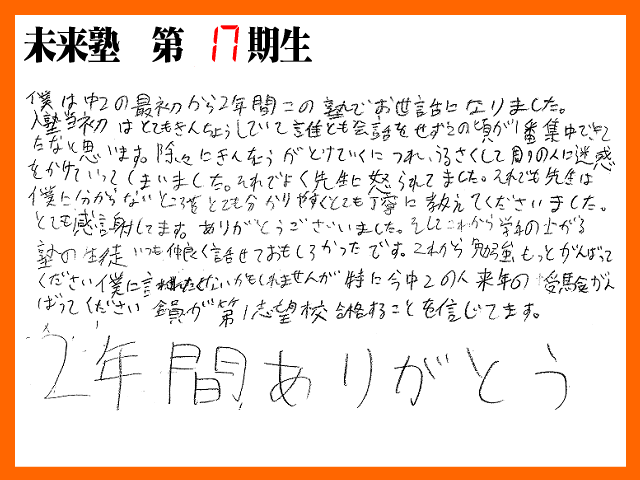 未来塾 第17期生
僕は中2の最初から2年間この塾でお世話になりました。
入塾当初はとてもきんちょうしていて誰とも会話をせずこの頃が1番集中できて
たなと思います。除々にきんちょうがとけていくにつれ、うるさくして周りの人に迷惑
をかけていってしまいました。それでよく先生に怒られてました。それでも先生は
僕に分からないところをとても分かりやすくとても丁寧に教えてくださいました。
とても感謝してます。ありがとうございました。そしてこれから学年の上がる
塾の生徒いつも仲良く話せておもしろかったです。これから勉強もっとがんばって
ください僕に言われたくないかもしれませんが特に今中2の人来年の受験がん
ばってください 全員が第1志望校合格することを信じてます。
2年間ありがとう